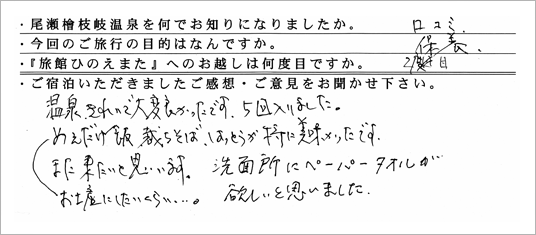 ・尾瀬檜枝岐温泉を何でお知りになりましたか。 口コミ.
・今回のご旅行の目的はなんですか。 保養.
・『旅館ひのえまた』へのお越しは何度目ですか。 2度目
・ご宿泊いただきましたご感想・ご意見をお聞かせ下さい。
温泉きれいで大変良かったです。5回入りました。
めえだけ飯 裁ちそば、はっとうが特に美味かったです。
また来たいと思います。 洗面所にペーパータオルが
お土産にしたいくらい…。 欲しいと思いました.